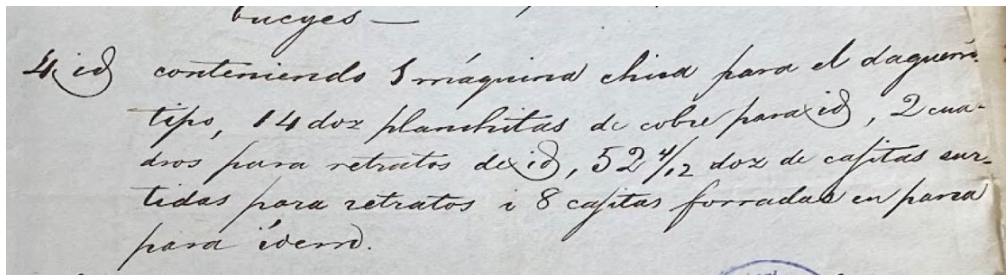 bueyes —
4 id conteniendo 1 máquina chica para el daguerro
tipo, 14 doz planchitas de cobre para id, 2 cua-
dros para retratos de id, 52 4/12 doz de cajitas sur-
tidas para retratos i 8 cajitas forradas en pana
para idem.